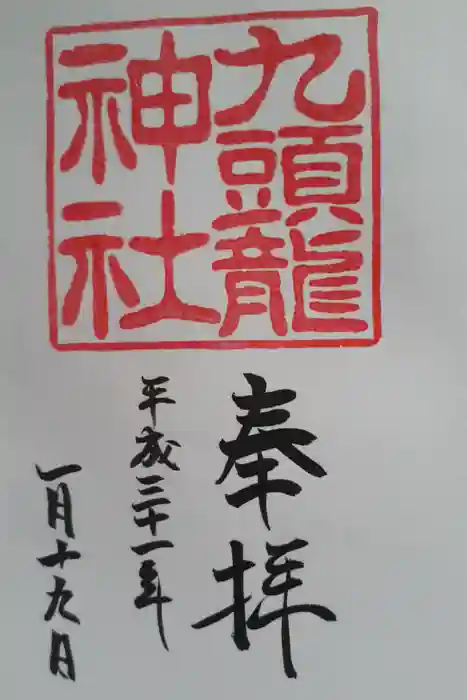 九頭龍
神社
奉拝
平成三十一年
一月十九日